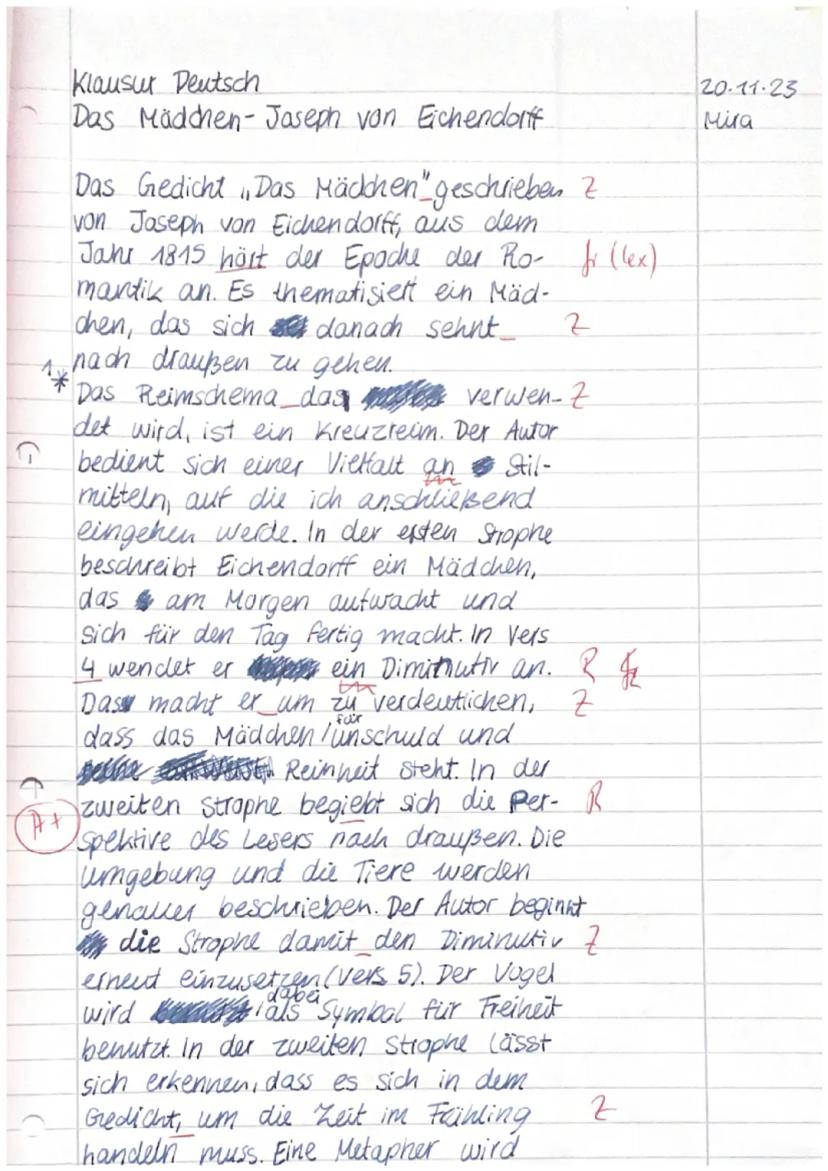 Klausur Deutsch 20.11.23
Das Mädchen - Joseph von Eichendorff Mira
Das Gedicht „Das Mädchen" geschrieben Z
von Joseph von Eichendorff, aus dem
Jahr 1815 hört der Epoche der Ro- fr (lex)
mantik an. Es thematisiert ein Mäd-
chen, das sich danach sehnt Z
nach draußen zu gehen.
1*
Das Reimschema das verwen- Z
det wird, ist ein Kreuzreim. Der Autor
bedient sich einer Vielfalt an Stil-
mitteln, auf die ich anschließend
eingehen werde. In der ersten Strophe
beschreibt Eichendorff ein Mädchen,
das am Morgen aufwacht und
sich für den Tag fertig macht. In Vers
4 wendet er ein Diminutiv an. R
Das macht er um zu verdeutlichen, Z
dass das Mädchen für unschuld und
Reinheit steht. In der
zweiten Strophe begiebt sich die Per- R
A+
spektive des Lesers nach draußen. Die
umgebung und die Tiere werden
genauer beschrieben. Der Autor beginnt
die Strophe damit den Diminutiv Z
erneut einzusetzen (Vers 5). Der Vogel
wird dabei als Symbol für Freiheit
benutzt. In der zweiten Strophe lässt
sich erkennen, dass es sich in dem
Gedicht, um die Zeit im Frühling Z
handeln muss. Eine Metapher wird